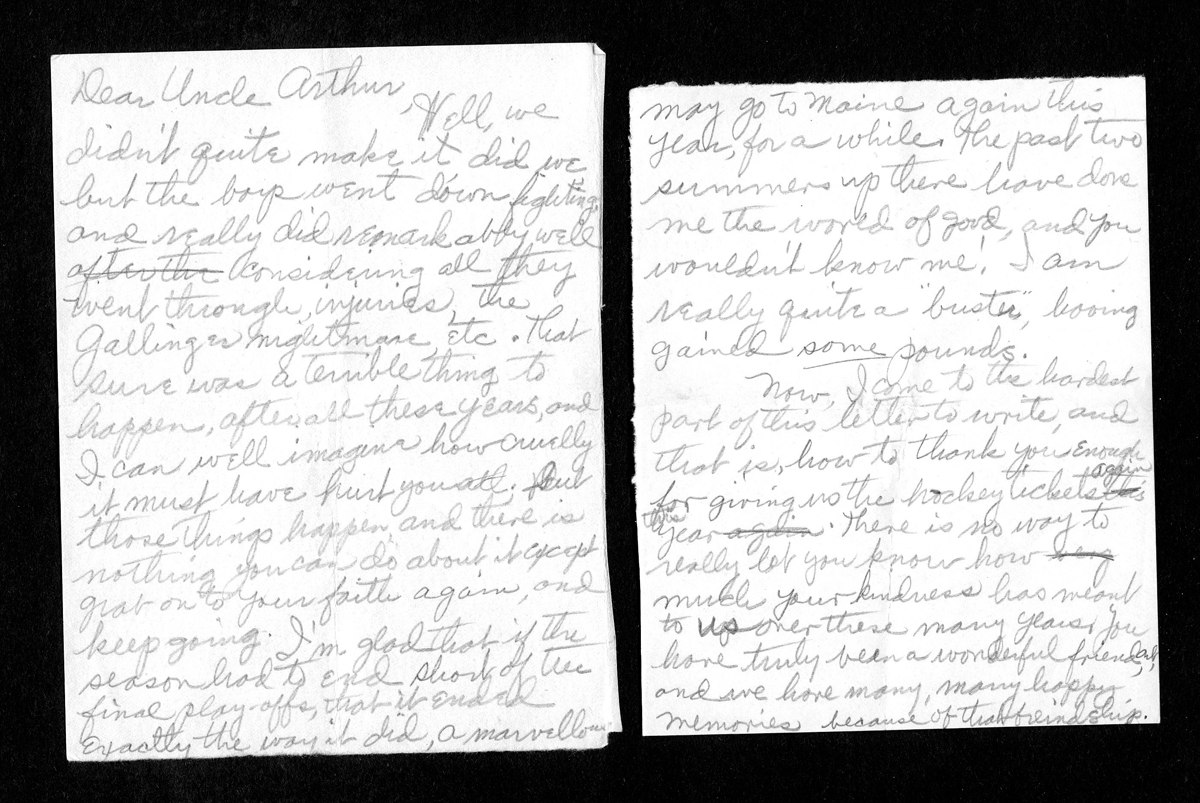 Dear Uncle Arthur,
Well, we
didn't quite make it did we
but the boys went down fighting,
and really did remarkably well
after the considering all they
went through, injuries, the
Gallinger nightmare, etc. That
sure was a terrible thing to
happen, after all these years, and
I can well imagine how cruelly
it must have hurt you all. But
those things happen, and there is
nothing you can do about it except
grab on to your faith again, and
keep going. I'm glad that if the
season had to end short of the
final play-offs, that it ended
exactly the way it did, a marvellous
may go to Maine again this
year, for a while. The past two
summers up there have done
me the world of good, and you
wouldn't know me! I am
really quite a "buster", having
gained some pounds.
Now, I come to the hardest
part of this letter to write, and
that is, how to thank you enough
again
for giving us the hockey tickets this
this
year again. There is no way to
really let you know how very
much your kindness has meant
to us over these many years. You
have truly been a wonderful friend, Al,
and we have many, many happy
memories because of that friendship.